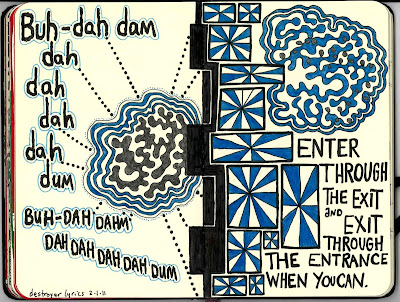 Buh-dah dam
dah
dah
dah
dah
dum
BUH-DAH DAHM
DAH DAH DAH DAH DUM
destroyer lyrics 2-1-11
ENTER
THROUGH
THE EXIT
AND EXIT
THROUGH
THE ENTRANCE
WHEN YOU CAN.